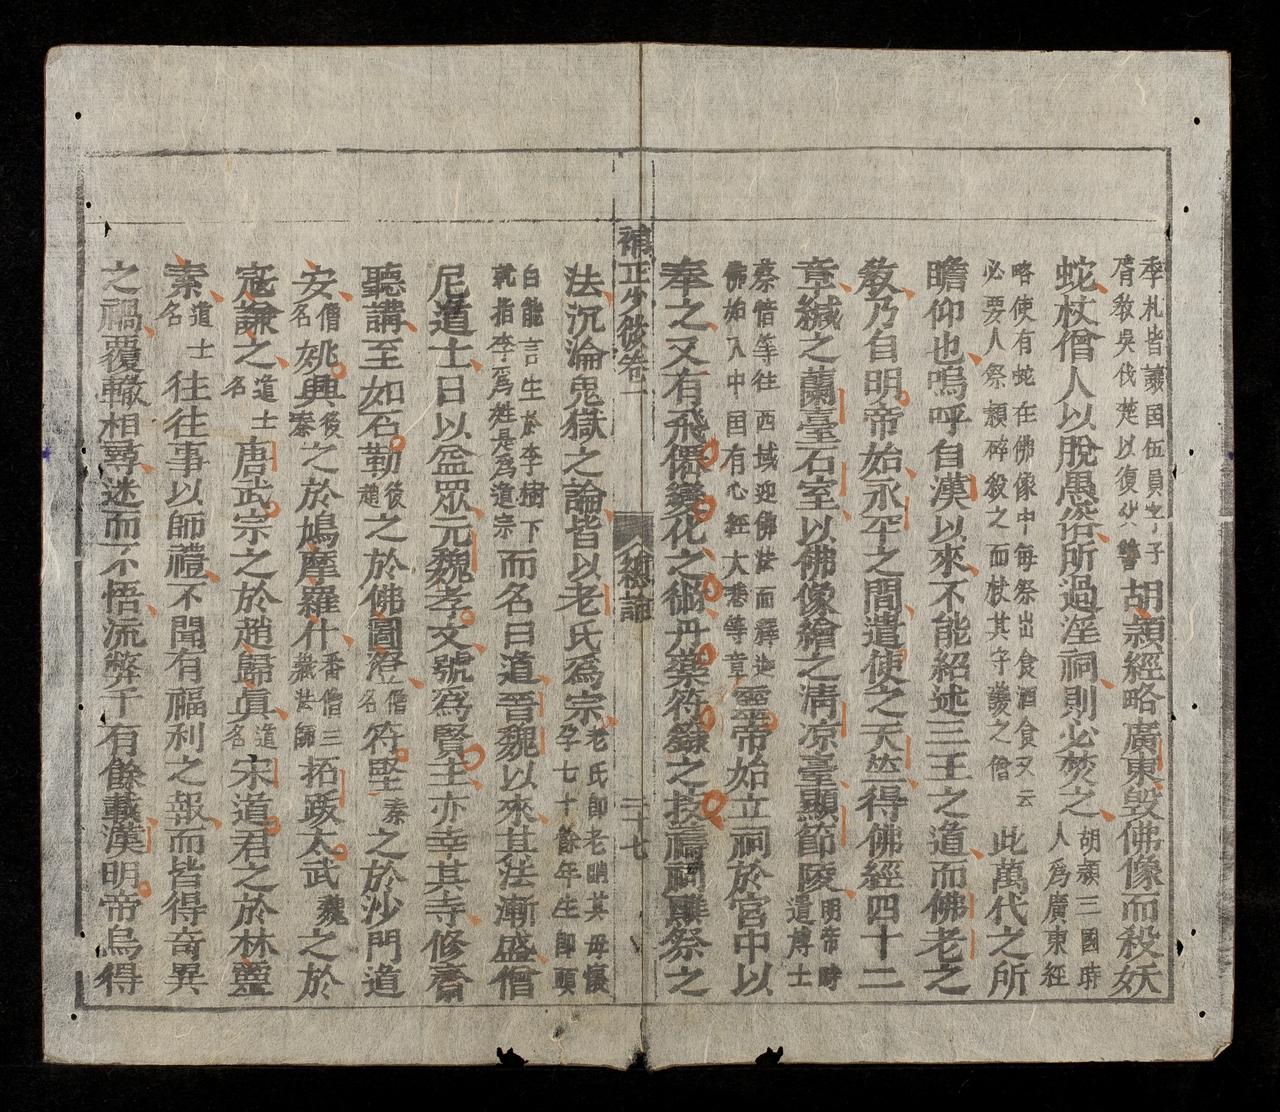 季札皆讓国伍員字子
胥教吳伐楚以復父讐
胡頴經略廣東毁佛像而殺妖
蛇杖僧人以脫愚俗所過淫祠則必焚之
胡頴三國時
人爲廣東經
略使有蛇在佛像中每祭出食酒食又云
必要人祭頴碎殺之而杖其守護之僧
此萬代之所
瞻仰也嗚呼自漢以來不能紹述三王之道而佛老之
教乃自明帝始永平之間遣使之天竺得佛經四十二
章緘之蘭臺石室以佛像繪之清凉臺顯節陵
明帝時
遣博士
蔡愔等往西域迎佛法面釋迦
佛始入中国有心經大悉等章
霊帝始立祠於宮中以
奉之又有飛僊變化之術丹藥符籙之技禱祠醮祭之
補正少微卷二
總論
二十七
法沉淪鬼獄之論皆以老氏爲宗
老氏即老聃其母懷
孕七十餘年生即頭
白能言生於李樹下
就指李爲姓是爲道宗
而名曰道晉魏以來其法漸盛僧
尼道士日以益眾元魏孝文號爲賢主亦幸其寺修齋
聽講至如石勒
後
趙
之於佛圖澄
僧
名
符堅
秦
之於沙門道
安
僧
名
姚興
後
秦
之於鳩摩羅什
番僧三
藏法師
拓跋太武
魏
之於
寇謙之
道士
名
唐武宗之於趙歸真
道
名
宋道君之於林靈
素
道士
名
往往事以師禮不聞有福利之報而皆得奇異
之禍覆轍相尋迷而不悟流弊千有餘載漢明帝烏得